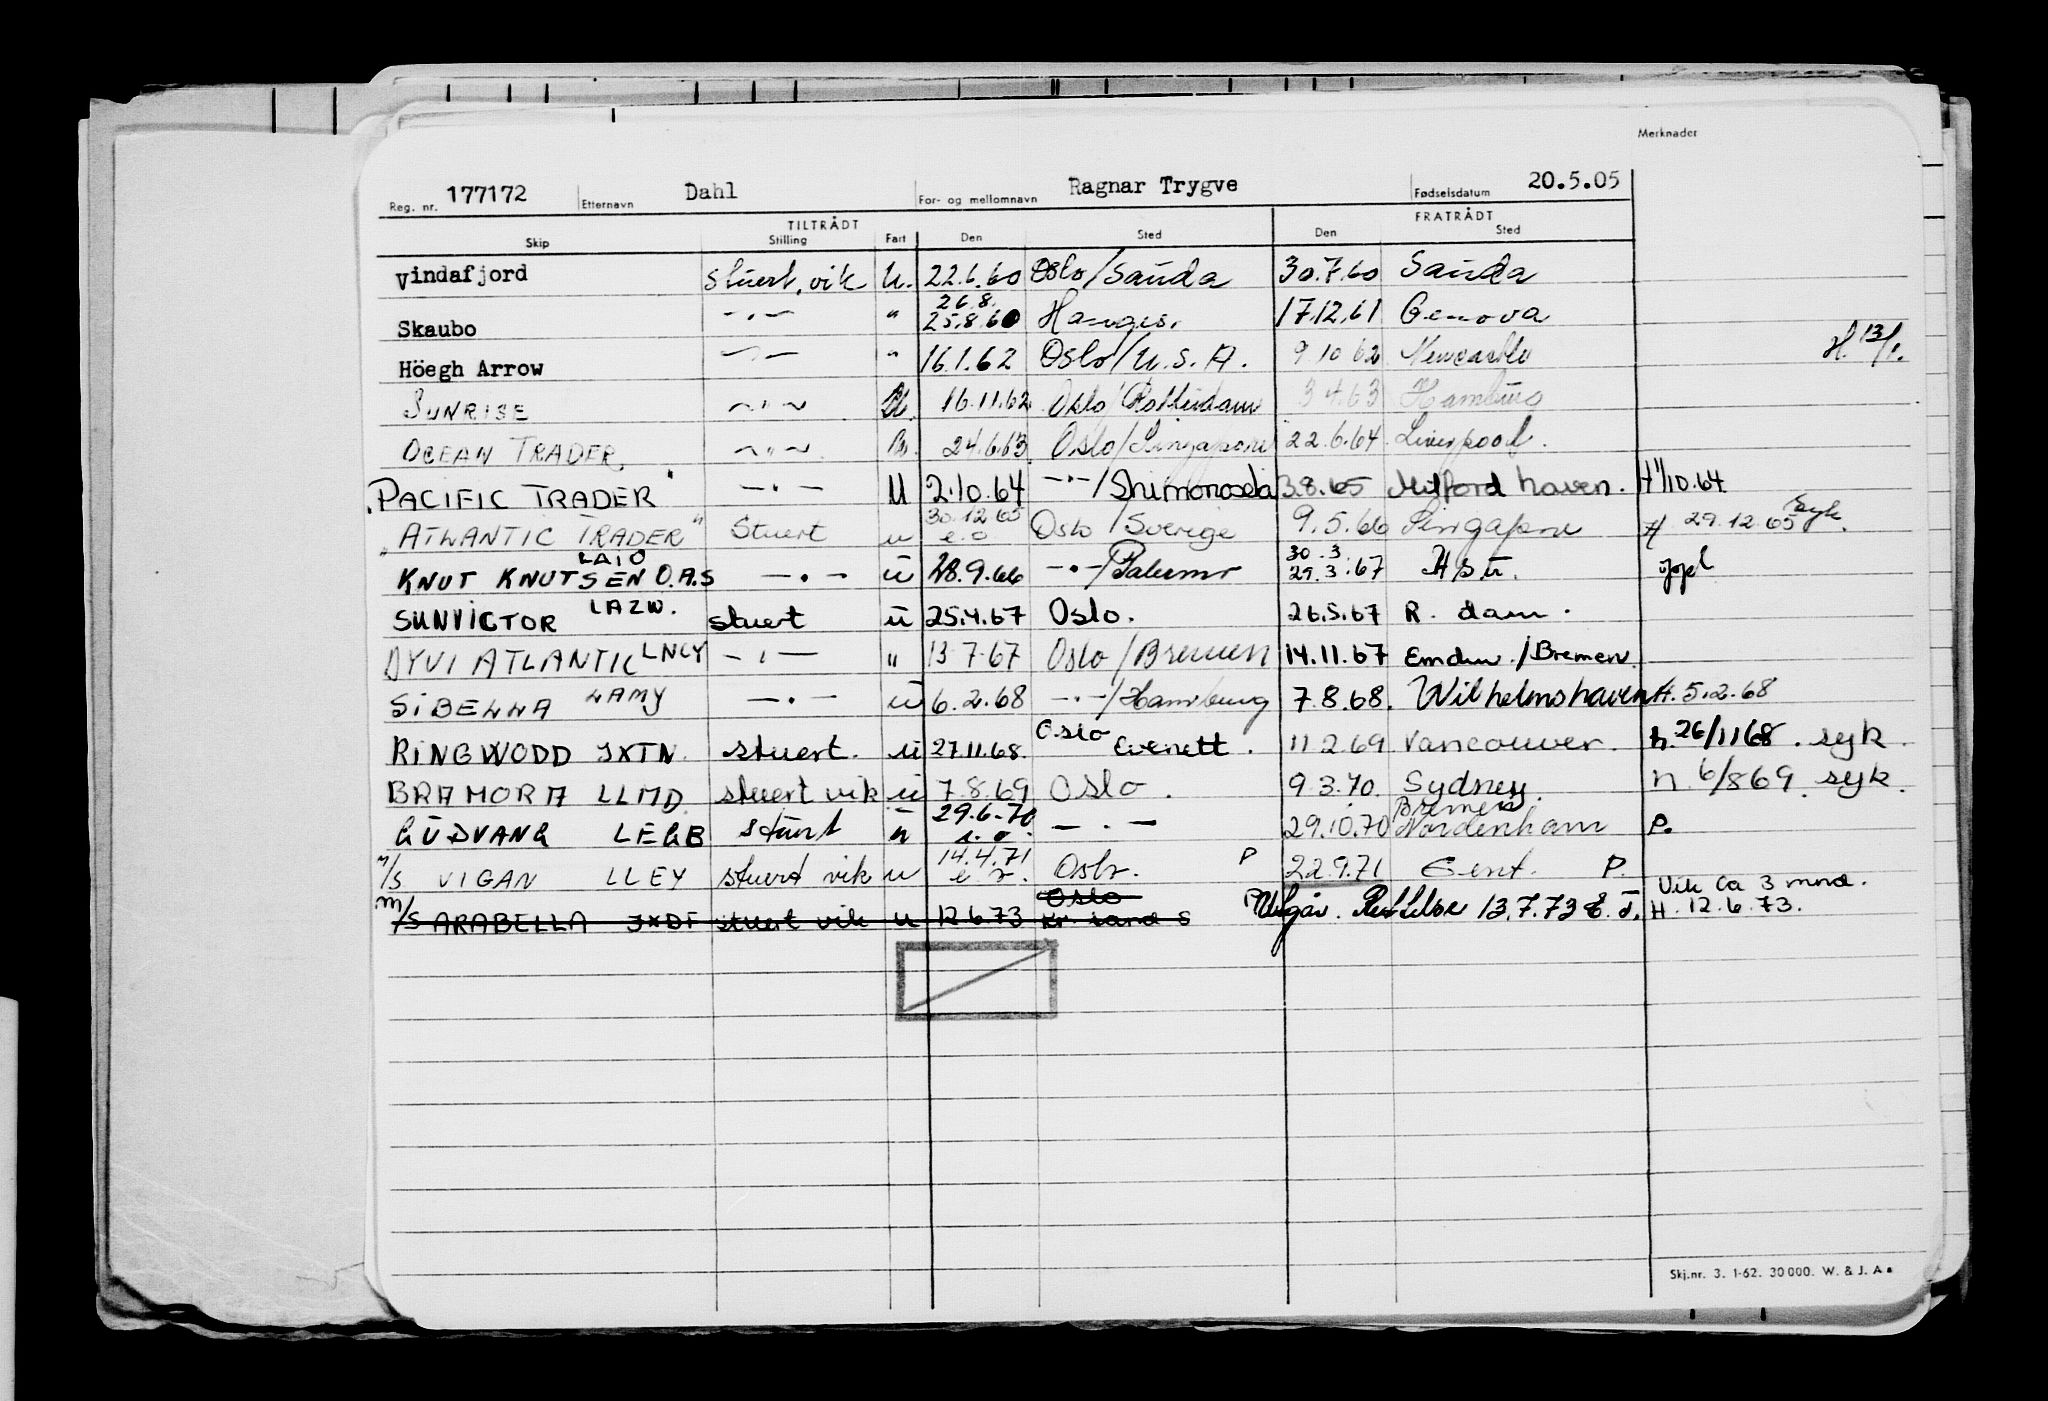 Merknader
Reg. nr. 177172 Etternavn Dahl For- og mellomnavn Ragnar Trygve Fødselsdatum 20.5.05
TILTRÅDT FRATRÅDT
Skip Stilling Fart Den Sted Den Sted
Vindafjord Stuert, vik U. 22.6.60 Oslo/Sauda 30.7.60 Sauda
26.8.
Skaubo -"- " 25.8.60 17.12.61 Genova
Höegh Arrow -"- " 16.1.62 Oslo/U.S.A. 9 10 62 Newcastle H. 13/1.
SUNRISE -"- U. 16.11.62 Oslo/Rotterdam 3 4.63 Hamburg
OCEAN TRADER. -"- 24.6.63 Oslo/Singapore 22.6.64 Liverpool.
"PACIFIC TRADER" -"- U 2.10.64 -"-/Shimonoseki 3.8.65 Milford haven. H 1/10.64
30.12.65
"ATLANTIC TRADER" Stuert u e.o Oslo/Sverige 9.5.66 Singapore H 29.12.65 Syk.
LAIO 30.3.
KNUT KNUTSEN O.A.S -"- u 28.9.66 -"-/Palermo 29.3.67 opl
SUNVICTOR LAZW. stuert u 25.4.67 Oslo. 26.5.67 R. dam.
DYVI ATLANTIC LNCY -"- " 13 7.67 Oslo/Bremen 14.11.67 Emden./Bremen.
SIBELLA LAMY -"- u 6.2.68 -"-/Hamburg 7.8.68. Wilhelmshaven H. 5.2.68
Oslo
RINGWOOD JXTN. stuert. u 27.11.68. Everett. 11 2.69 Vancouver. h. 26/11 68. syk.
BRAMORA LLMD. stuert vik u 7.8.69 Oslo. 9.3.70. Sydney. h 6/8 69. syk.
29.6.70 Bremen
GUDVANG LEGB stuert u -"- 29.10.70 Nordenham P.
14.4.71
m/s VIGAN LLEY stuert vik u Oslo. P 22.9.71 Gent. P.
Oslo Vik ca 3 mnd.
m/s ARABELLA JXDF stuert vik u 12.6.73 Kr. sand S Utgår. Rettelse 13.7.73 H. 12.6.73.
Skj.nr. 3. 1-62. 30 000. W. & J. A s